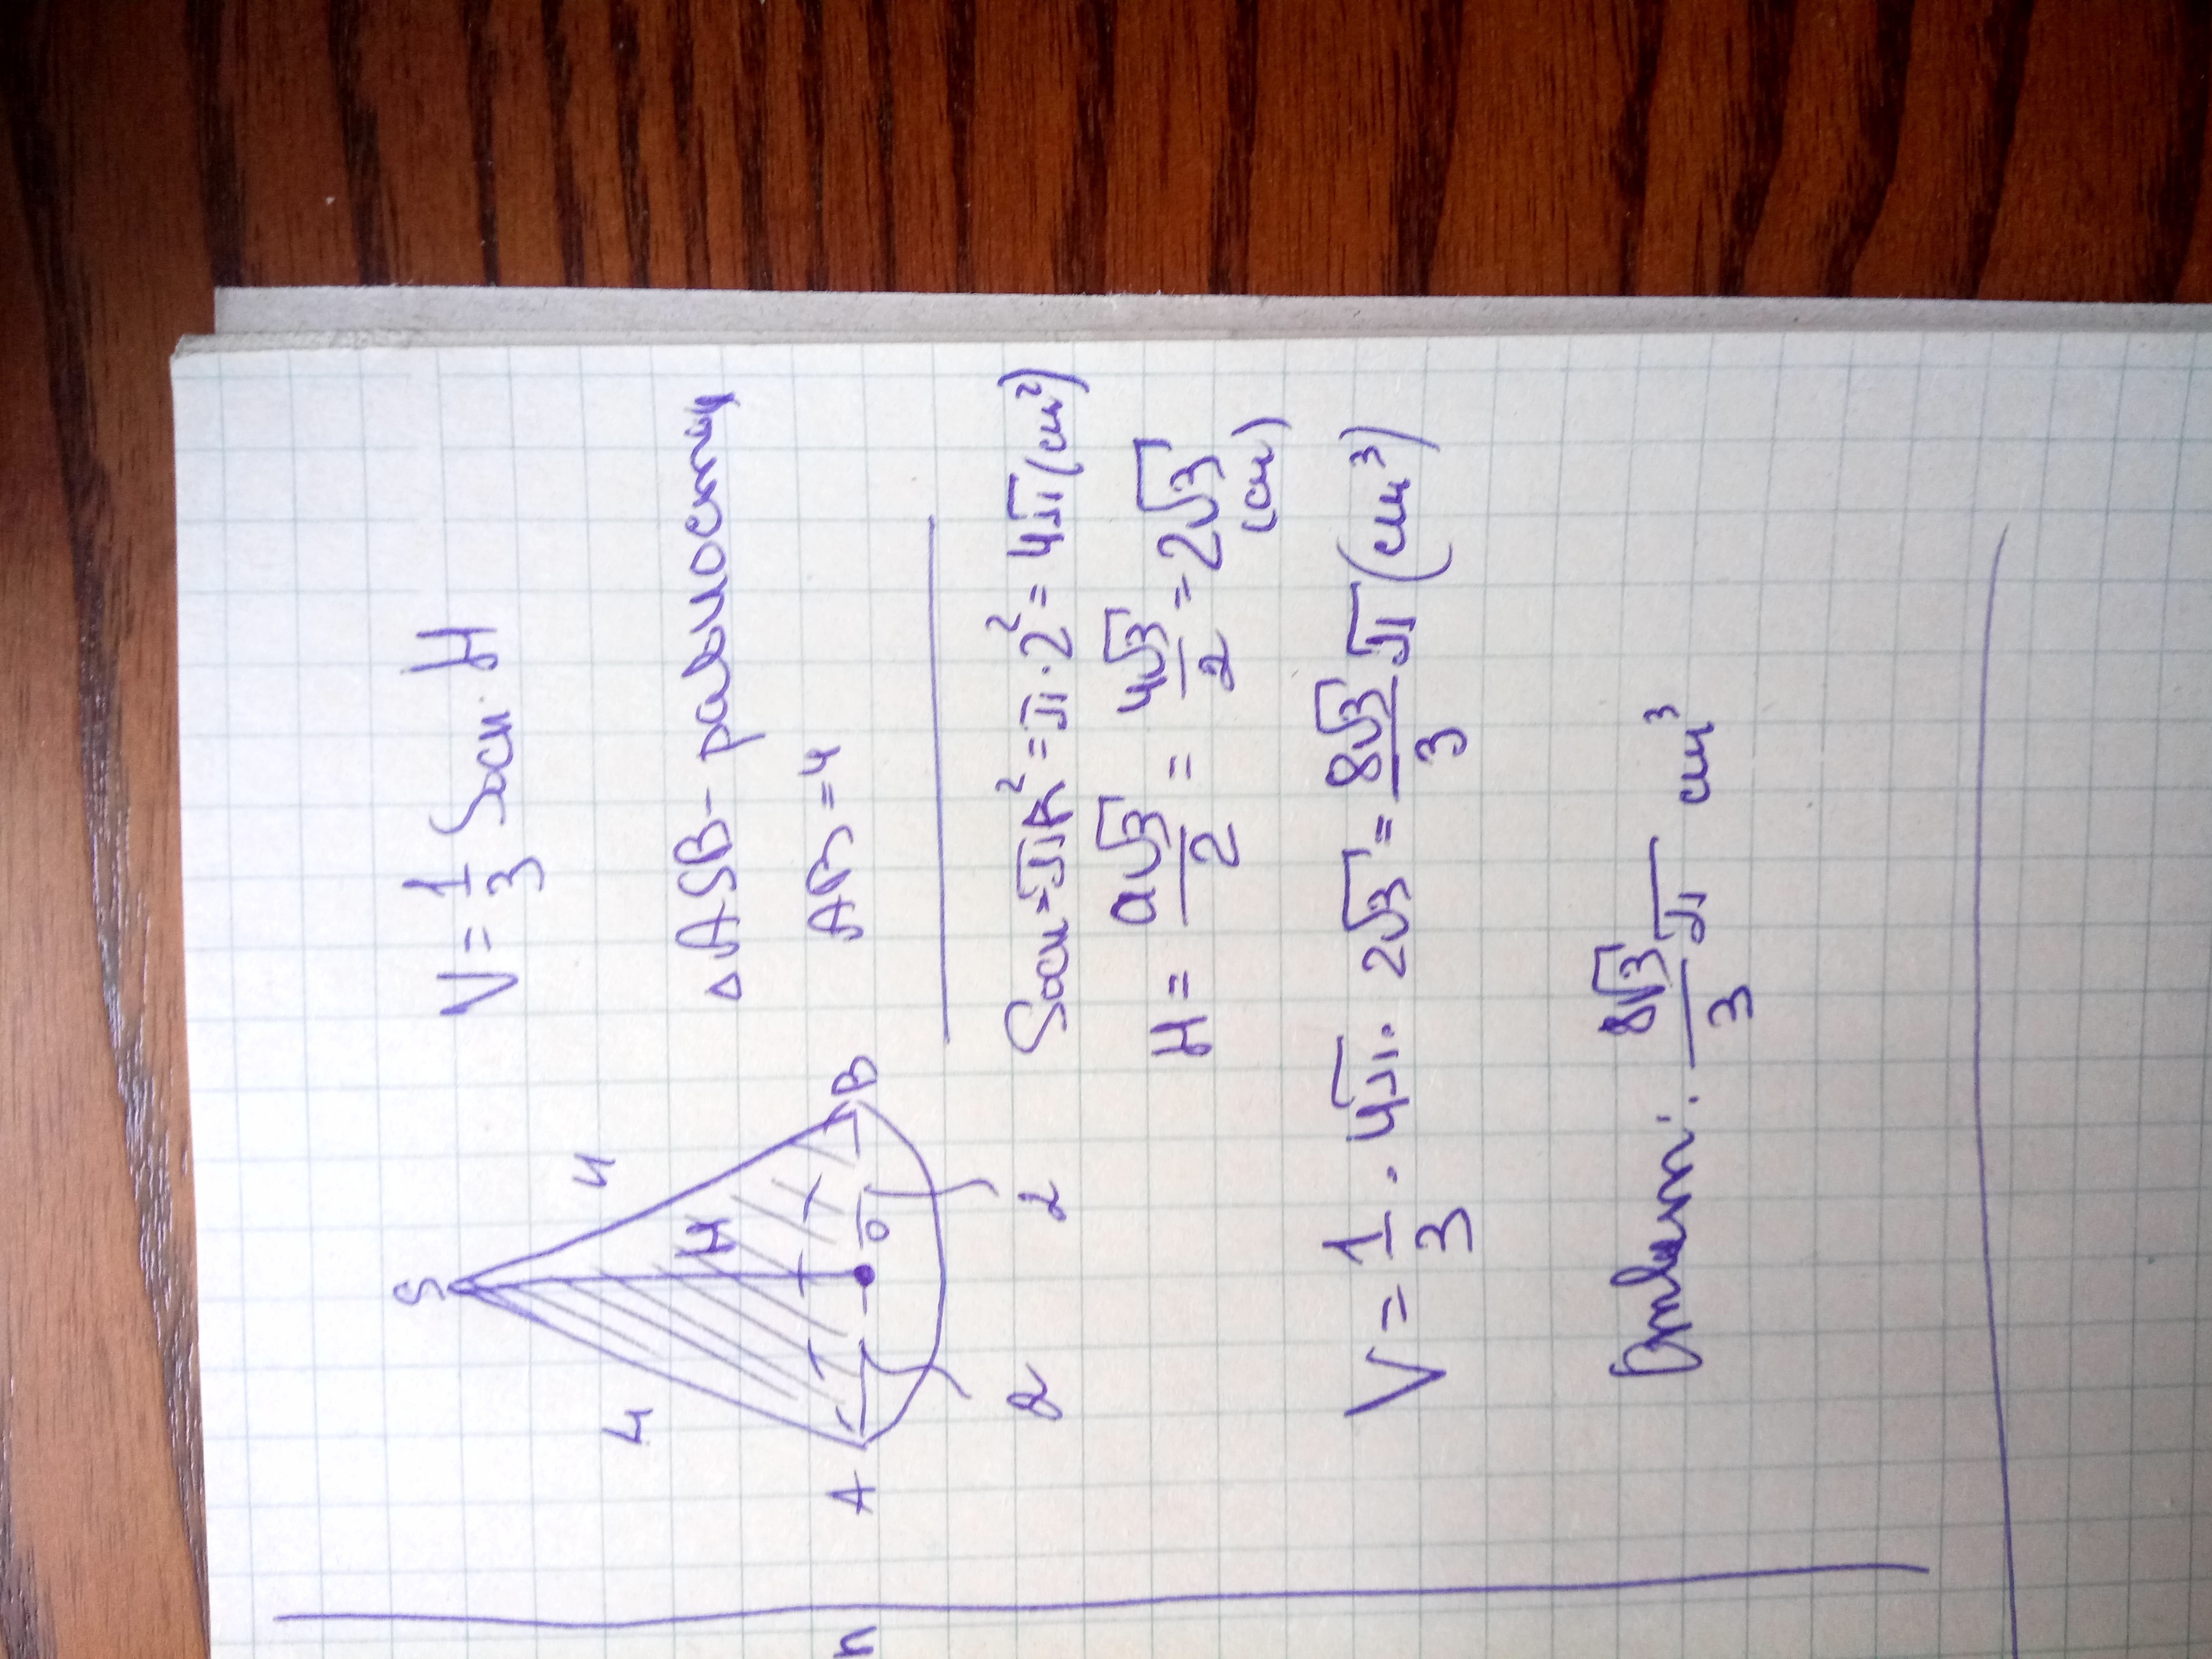 S
4
4
H
A
O
B
2
2
V = 1/3 Sосн. H
△ASB – равност
AB = 4
Sосн = πR² = π·2² = 4π (см²)
H = a√3/2 = 4√3/2 = 2√3 (см)
V = 1/3 · 4π · 2√3 = 8√3/3 π (см³)
Ответ: 8√3/3 π см³